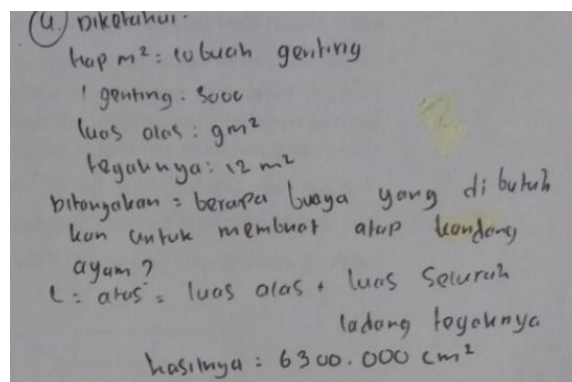 4. Diketahui.
tiap m² = 10 buah genting
1 genting : 3000
luas alas : 9m²
tegaknya : 12 m²
Ditanyakan = berapa biaya yang di butuh
kan untuk membuat atap kandang
ayam ?
L = atas = luas alas + luas seluruh
ladang tegaknya
hasilnya = 6300.000 cm²